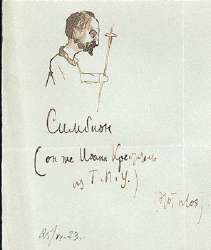 Симбион
(он же Иоанн Креститель
из Г.П.У.)
23.